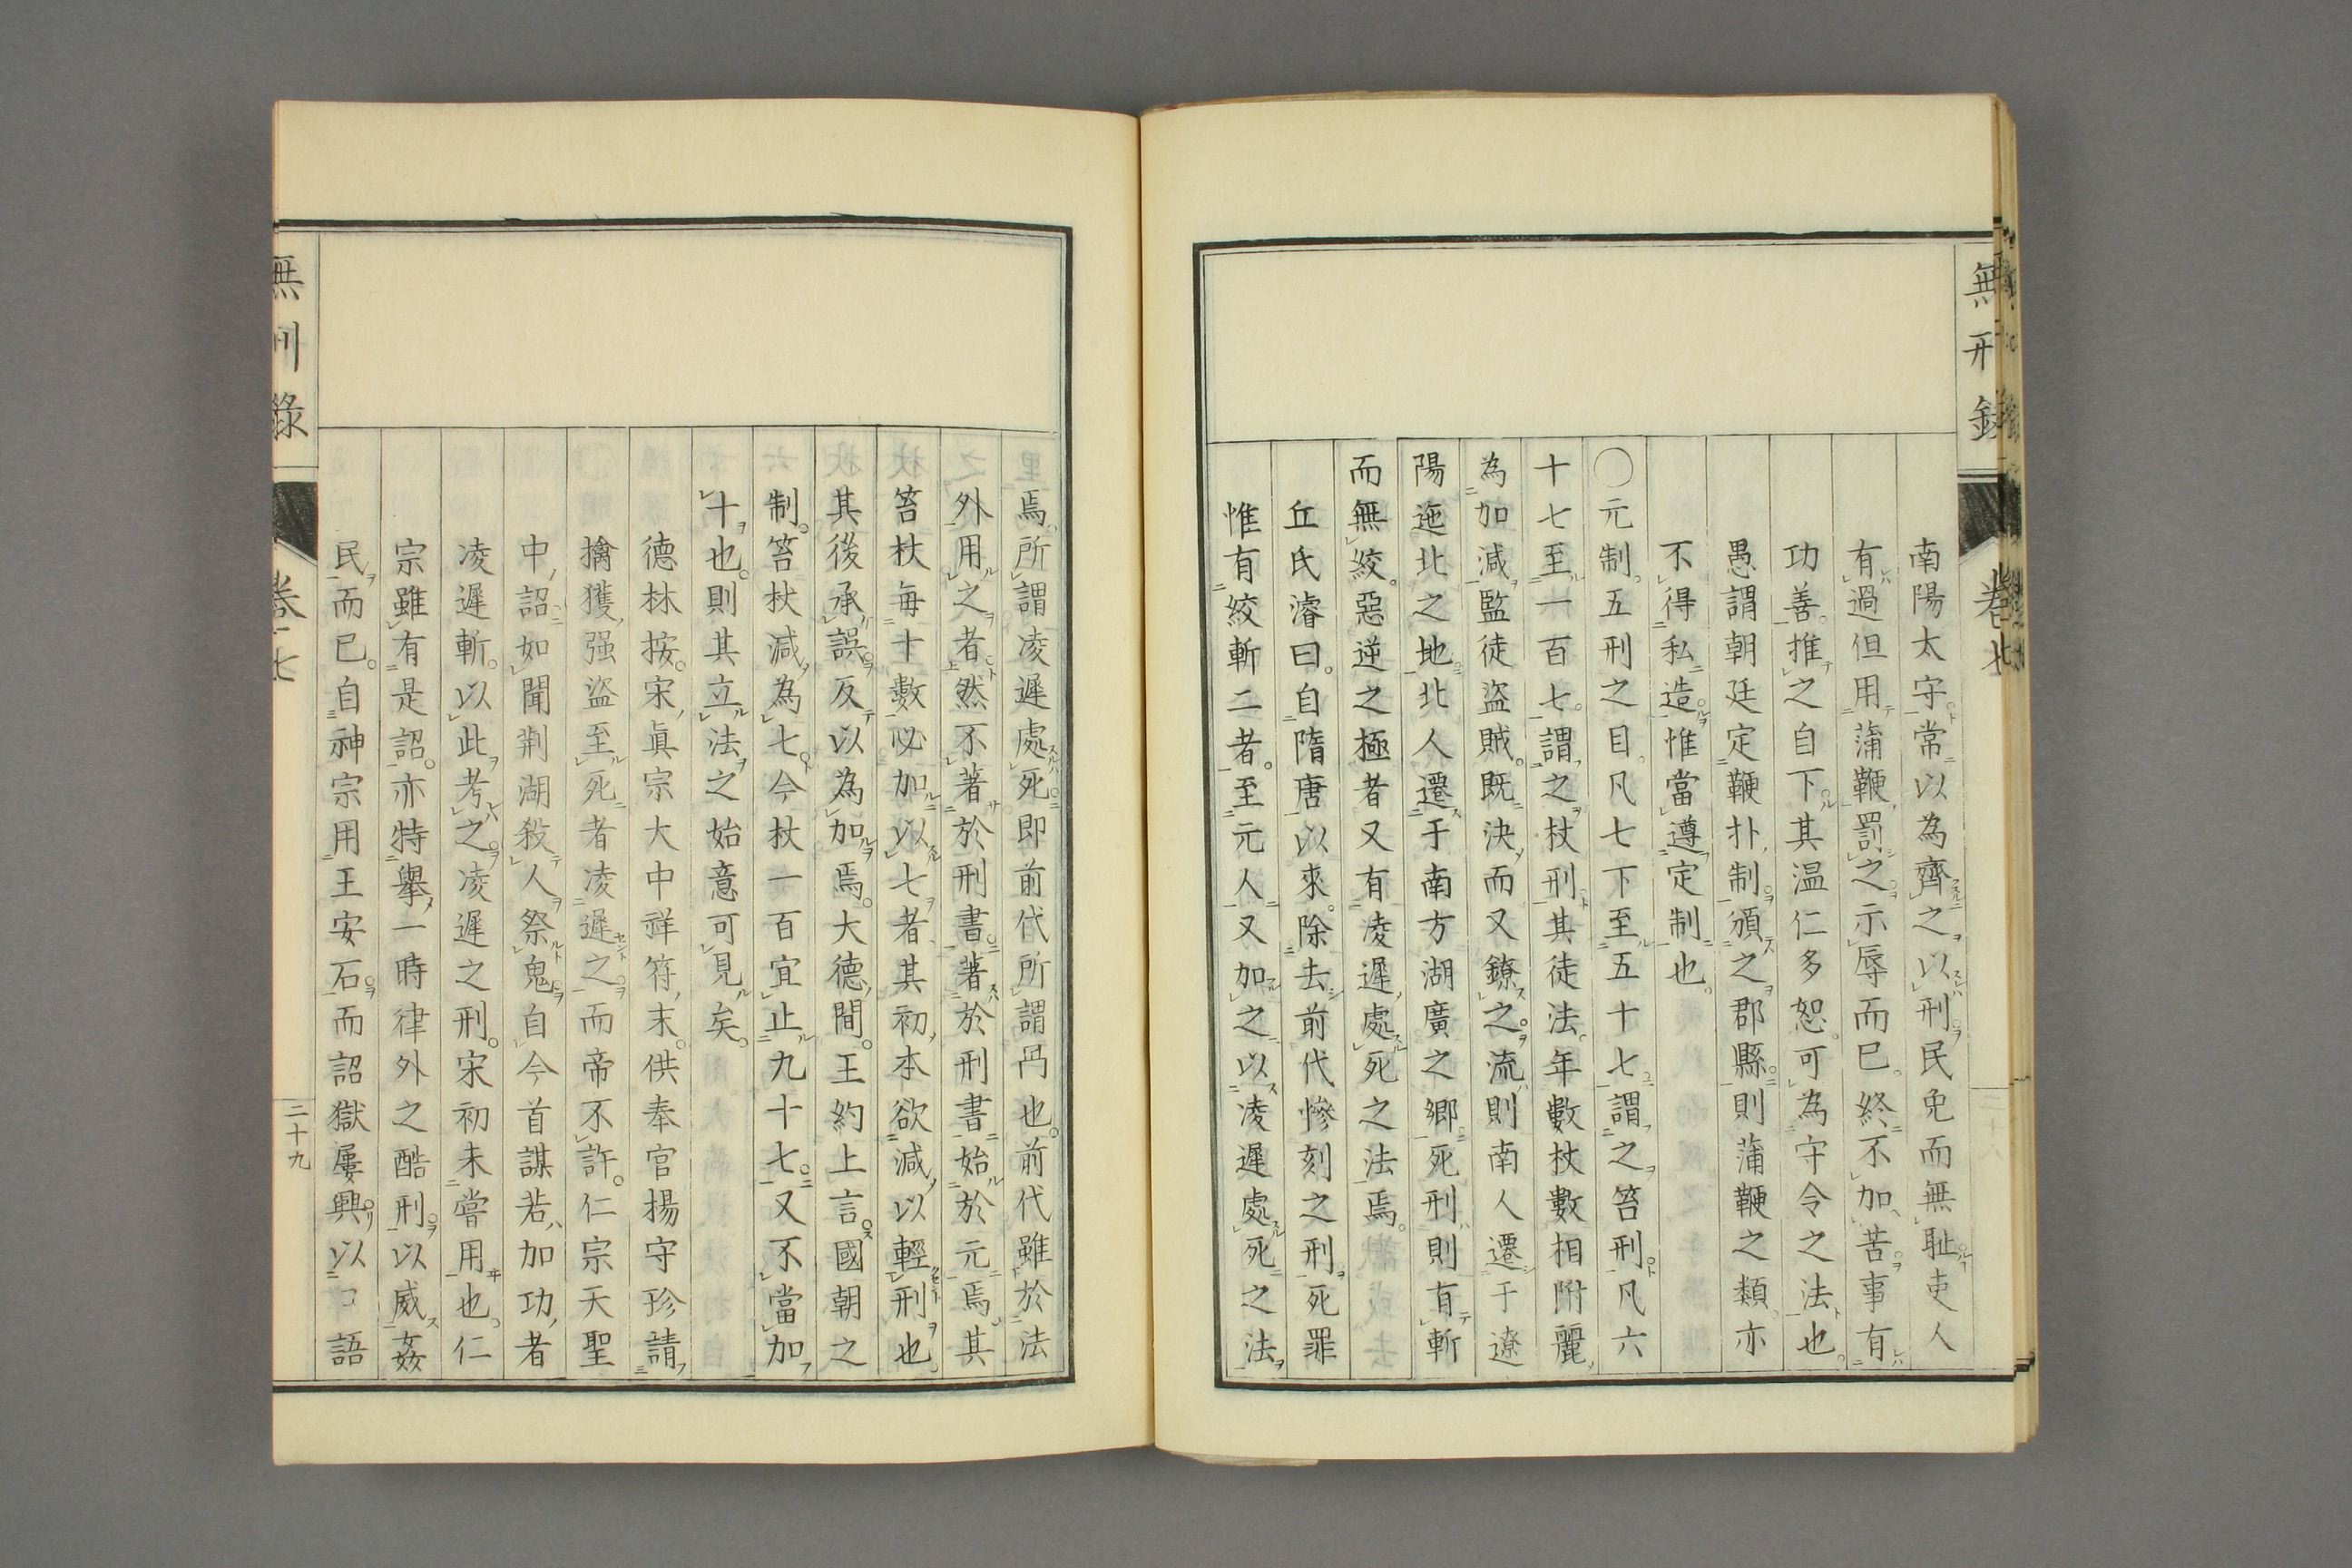 南陽太守常以為齊之以刑民免而無耻吏人
有過但用蒲鞭罰之示辱而已終不加苦事有
功善推之自下其温仁多恕可為守令之法也
愚謂朝廷定鞭扑制頒之郡縣則蒲鞭之類亦
不得私造惟當遵定制也
〇元制五刑之目凡七下至五十七謂之笞刑凡六
十七至一百七謂之杖刑其徒法年數杖數相附麗
為加減監徒盜賊既決而又鐐之流則南人遷于遼
陽迤北之地北人遷于南方湖廣之鄉死刑則有斬
而無絞惡逆之極者又有凌遲處死之法焉
丘氏濬曰自隋唐以來除去前代慘刻之刑死罪
惟有絞斬二者至元人又加之以凌遲處死之法
焉所謂凌遲處死即前代所謂冎也前代雖於法
外用之者然不著於刑書著於刑書始於元焉其
笞杖每十數必加以七者其初本欲減以輕刑也
其後承誤反以為加焉大德間王約上言國朝之
制笞杖減為七今杖一百宜止九十七又不當加
十也則其立法之始意可見矣
德林按宋眞宗大中祥符末供奉官揚守珍請
擒獲强盜至死者凌遲之而帝不許仁宗天聖
中詔如聞荆湖殺人祭鬼自今首謀若加功者
凌遲斬以此考之凌遲之刑宋初未嘗用也仁
宗雖有是詔亦特舉一時律外之酷刑以威姦
民而已自神宗用王安石而詔獄屢興以口語
無刑錄
卷十七
二十九